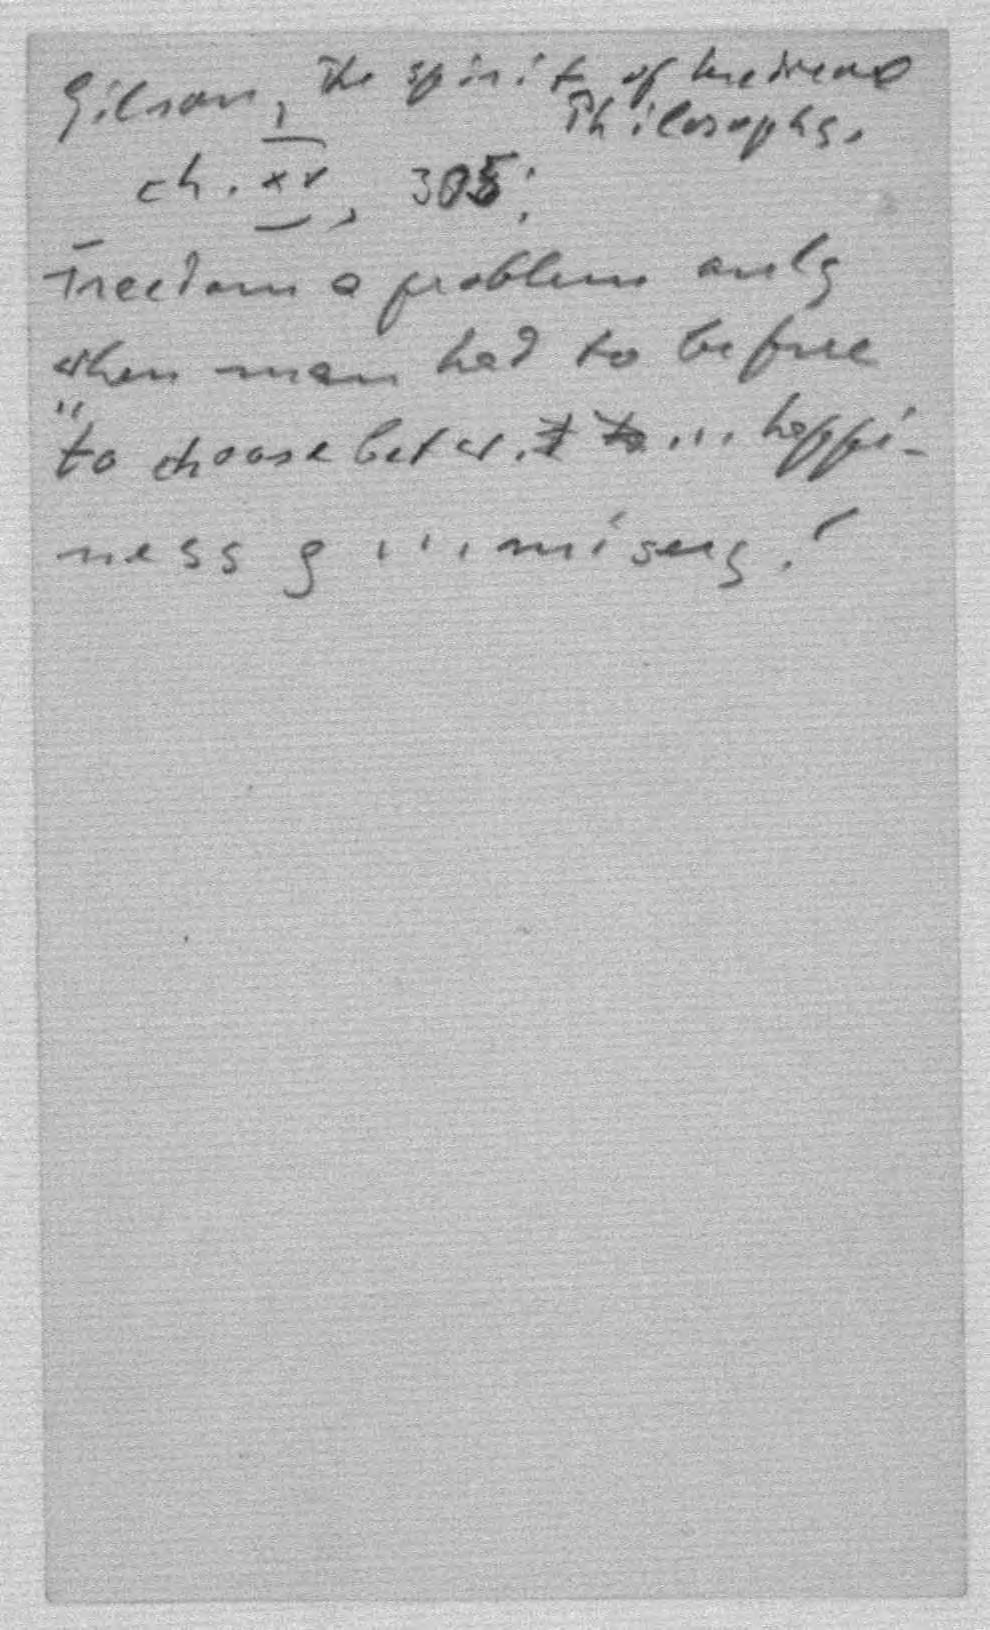 Gilson, The Spirit of Medieval
Philosophy,
ch. XV, 305:
Freedom a problem only
when man had to be free
"to choose betw. ... happi-
ness & ... misery."